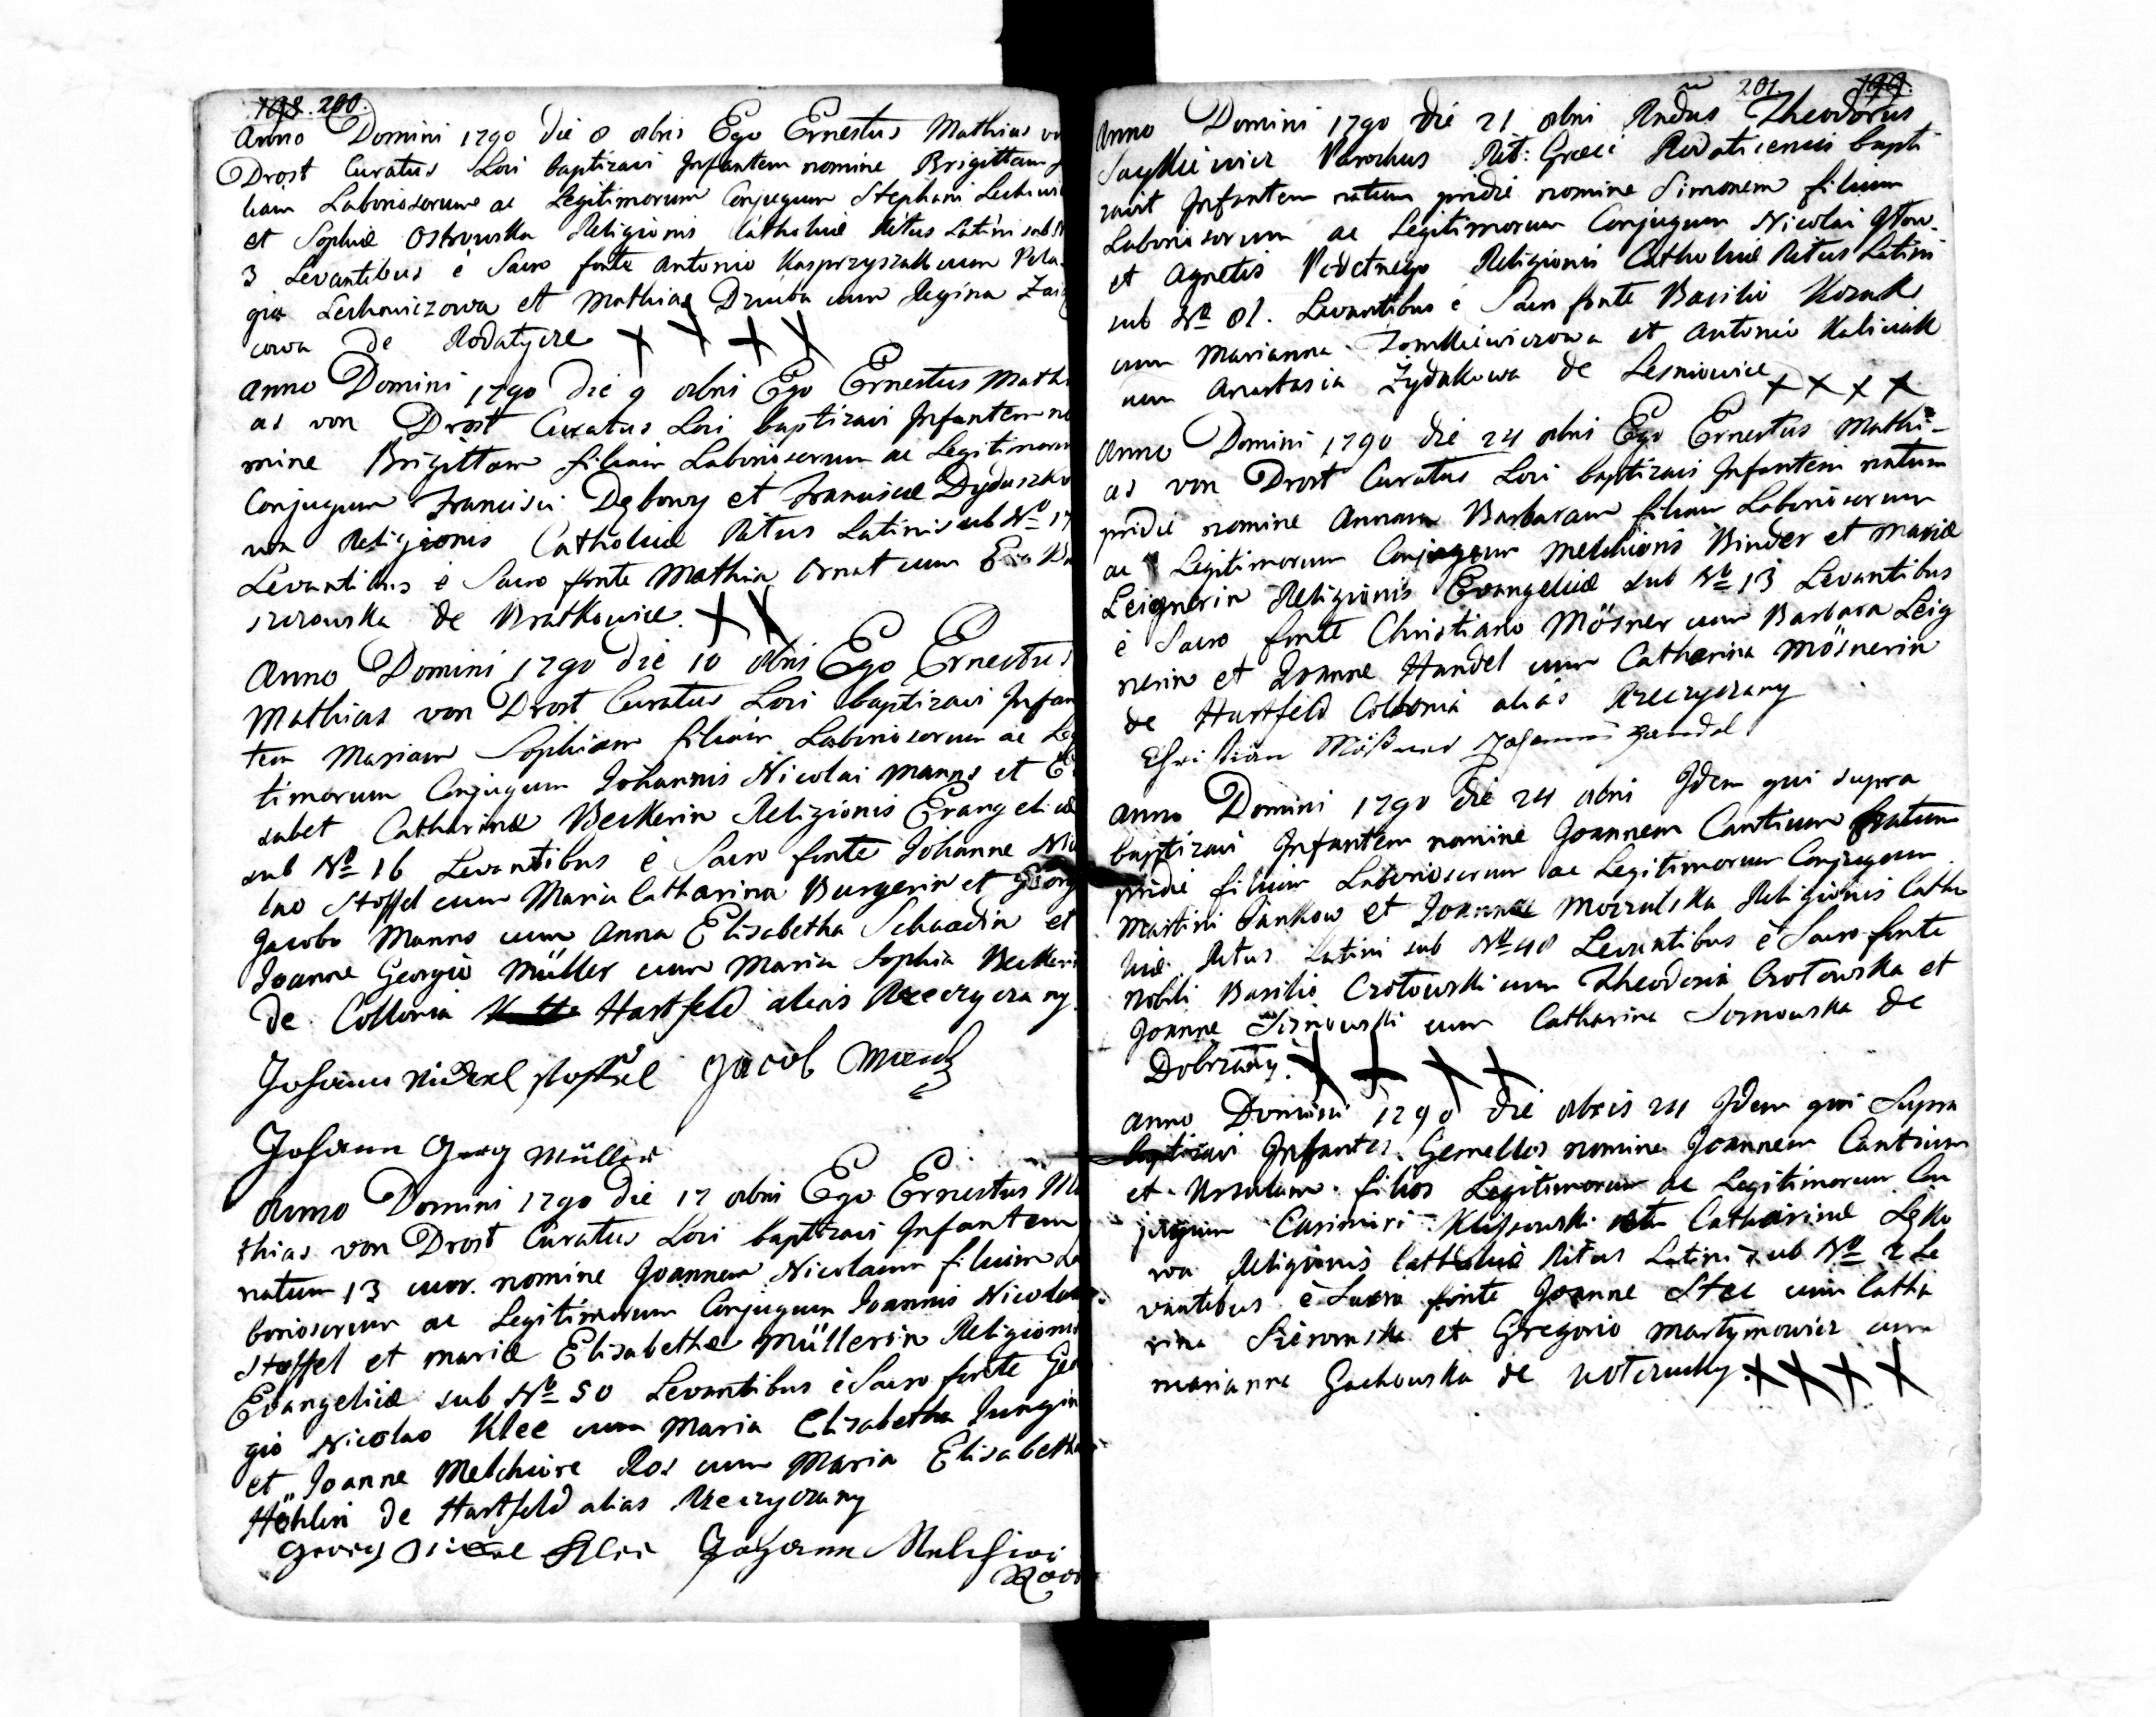 198. 200.
Anno Domini 1790 die 8 8bris Ego Ernestus Mathias vo
Drost Curatus Loci baptizavi Infantem nomine Brigittam
liam Laboriosorum ac Legitimorum Conjugum Stephani Lechowi
et Sophiæ Ostrowska Religionis Catholicæ Ritus Latini sub N
3 Levantibus è Sacro fonte Antonio Kasprzyszak cum Pela
gia Lechowiczowa et Mathias Dziuba cum Regina Zai
cowa de Rodatycze X X X X
Anno Domini 1790 die 9 8bris Ego Ernestus Mathi
as von Drost Curatus Loci baptizavi Infantem no
mine Brigittam filiam Laboriosorum ac Legitimorum
Conjugum Francisci Dębowy et Franciscæ Dyduszko
wa Religionis Catholicæ Ritus Latini sub No 17
Levantibus è Sacro fonte Mathia Ornat cum Eva
szczowska de Bratkowice. X X
Anno Domini 1790 die 10 8bris Ego Ernestus
Mathias von Drost Curatus Loci baptizavi Infan
tem Mariam Sophiam filiam Laboriosorum ac Leg
timorum Conjugum Johannis Nicolai Manns et E
sabet Catharinæ Beckerin Religionis Evangelicæ
sub No 16 Levantibus è Sacro fonte Johanne Nico
lao Stoffel cum Maria Catharina Burgerin et Georg
Jacobo Manns cum Anna Elisabetha Schaadin et
Joanne Georgio Müller cum Maria Sophia Beckeri
de Collonia Hartfeld alias Rzeczyczany
Johann Nickel Stoffel Jacob
Johann Georg Müller
Anno Domini 1790 die 17 8bris Ego Ernestus Ma
thias von Drost Curatus Loci baptizavi Infantem
natum 13 curr. nomine Joannem Nicolaum filium La
boriosorum ac Legitimorum Conjugum Joannis Nicolai
Stoffel et Mariæ Elisabethæ Müllerin Religionis
Evangelicæ sub No 50 Levantibus è Sacro fonte Geor
gio Nicolao Klee cum Maria Elisabetha Jungin
et Joanne Melchiore Ros cum Maria Elisabetha
Höhlin de Hartfeld alias Rzeczyczany
Georg Nickel Klee Johann Melchior
201. 199.
Anno Domini 1790 die 21 8bris Rndus Theodorus
Parochus Rit: Græci Rodaticensis bapti
zavit Infantem natum pridie nomine Simonem filium
Laboriosorum ac Legitimorum Conjugum Nicolai
et Agnetis Religionis Catholicæ Ritus Latini
sub No 81. Levantibus è Sacro fonte Basilio Kozak
cum Marianna Tomkiewiczowa et Antonio Kaliciak
cum Anastasia Zydakowa de Lesniowice X X X X
Anno Domini 1790 die 24 8bris Ego Ernestus Mathi-
as von Drost Curatus Loci baptizavi Infantem natam
pridie nomine Annam Barbaram filiam Laboriosorum
ac Legitimorum Conjugum Melchioris Binder et Mariæ
Leignerin Religionis Evangelicæ sub No 13 Levantibus
è Sacro fonte Christiano Mösner cum Barbara Leig
nerin et Joanne Handel cum Catharina Mösnerin
de Hartfeld Collonia alias Rzeczyczany
Christian Mößner Johannes Handel
Anno Domini 1790 die 24 8bris Idem qui supra
baptizavi Infantem nomine Joannem Cantium natum
pridie filium Laboriosorum ac Legitimorum Conjugum
Martini Jankow et Joannæ Mozrulska Religionis Catho
licæ Ritus Latini sub No 48 Levantibus è Sacro fonte
Nobili Basilio Crotowski cum Theodosia Crotowska et
Joanne Sosnowski cum Catharina Sosnowska de
Dobrzany. X X X X
Anno Domini 1790 die 8bris 24 Idem qui Supra
baptizavi Infantes Gemellos nomine Joannem Cantium
et Ursulam filios Legitimorum ac Legitimorum Con
jugum Casimiri et Catharinæ Lesko
wa Religionis Catholicæ Ritus Latini sub No 2 Le
vantibus è Sacro fonte Joanne Stec cum Catha
rina et Gregorio Martynowicz cum
Marianna Gachowska de X X X X